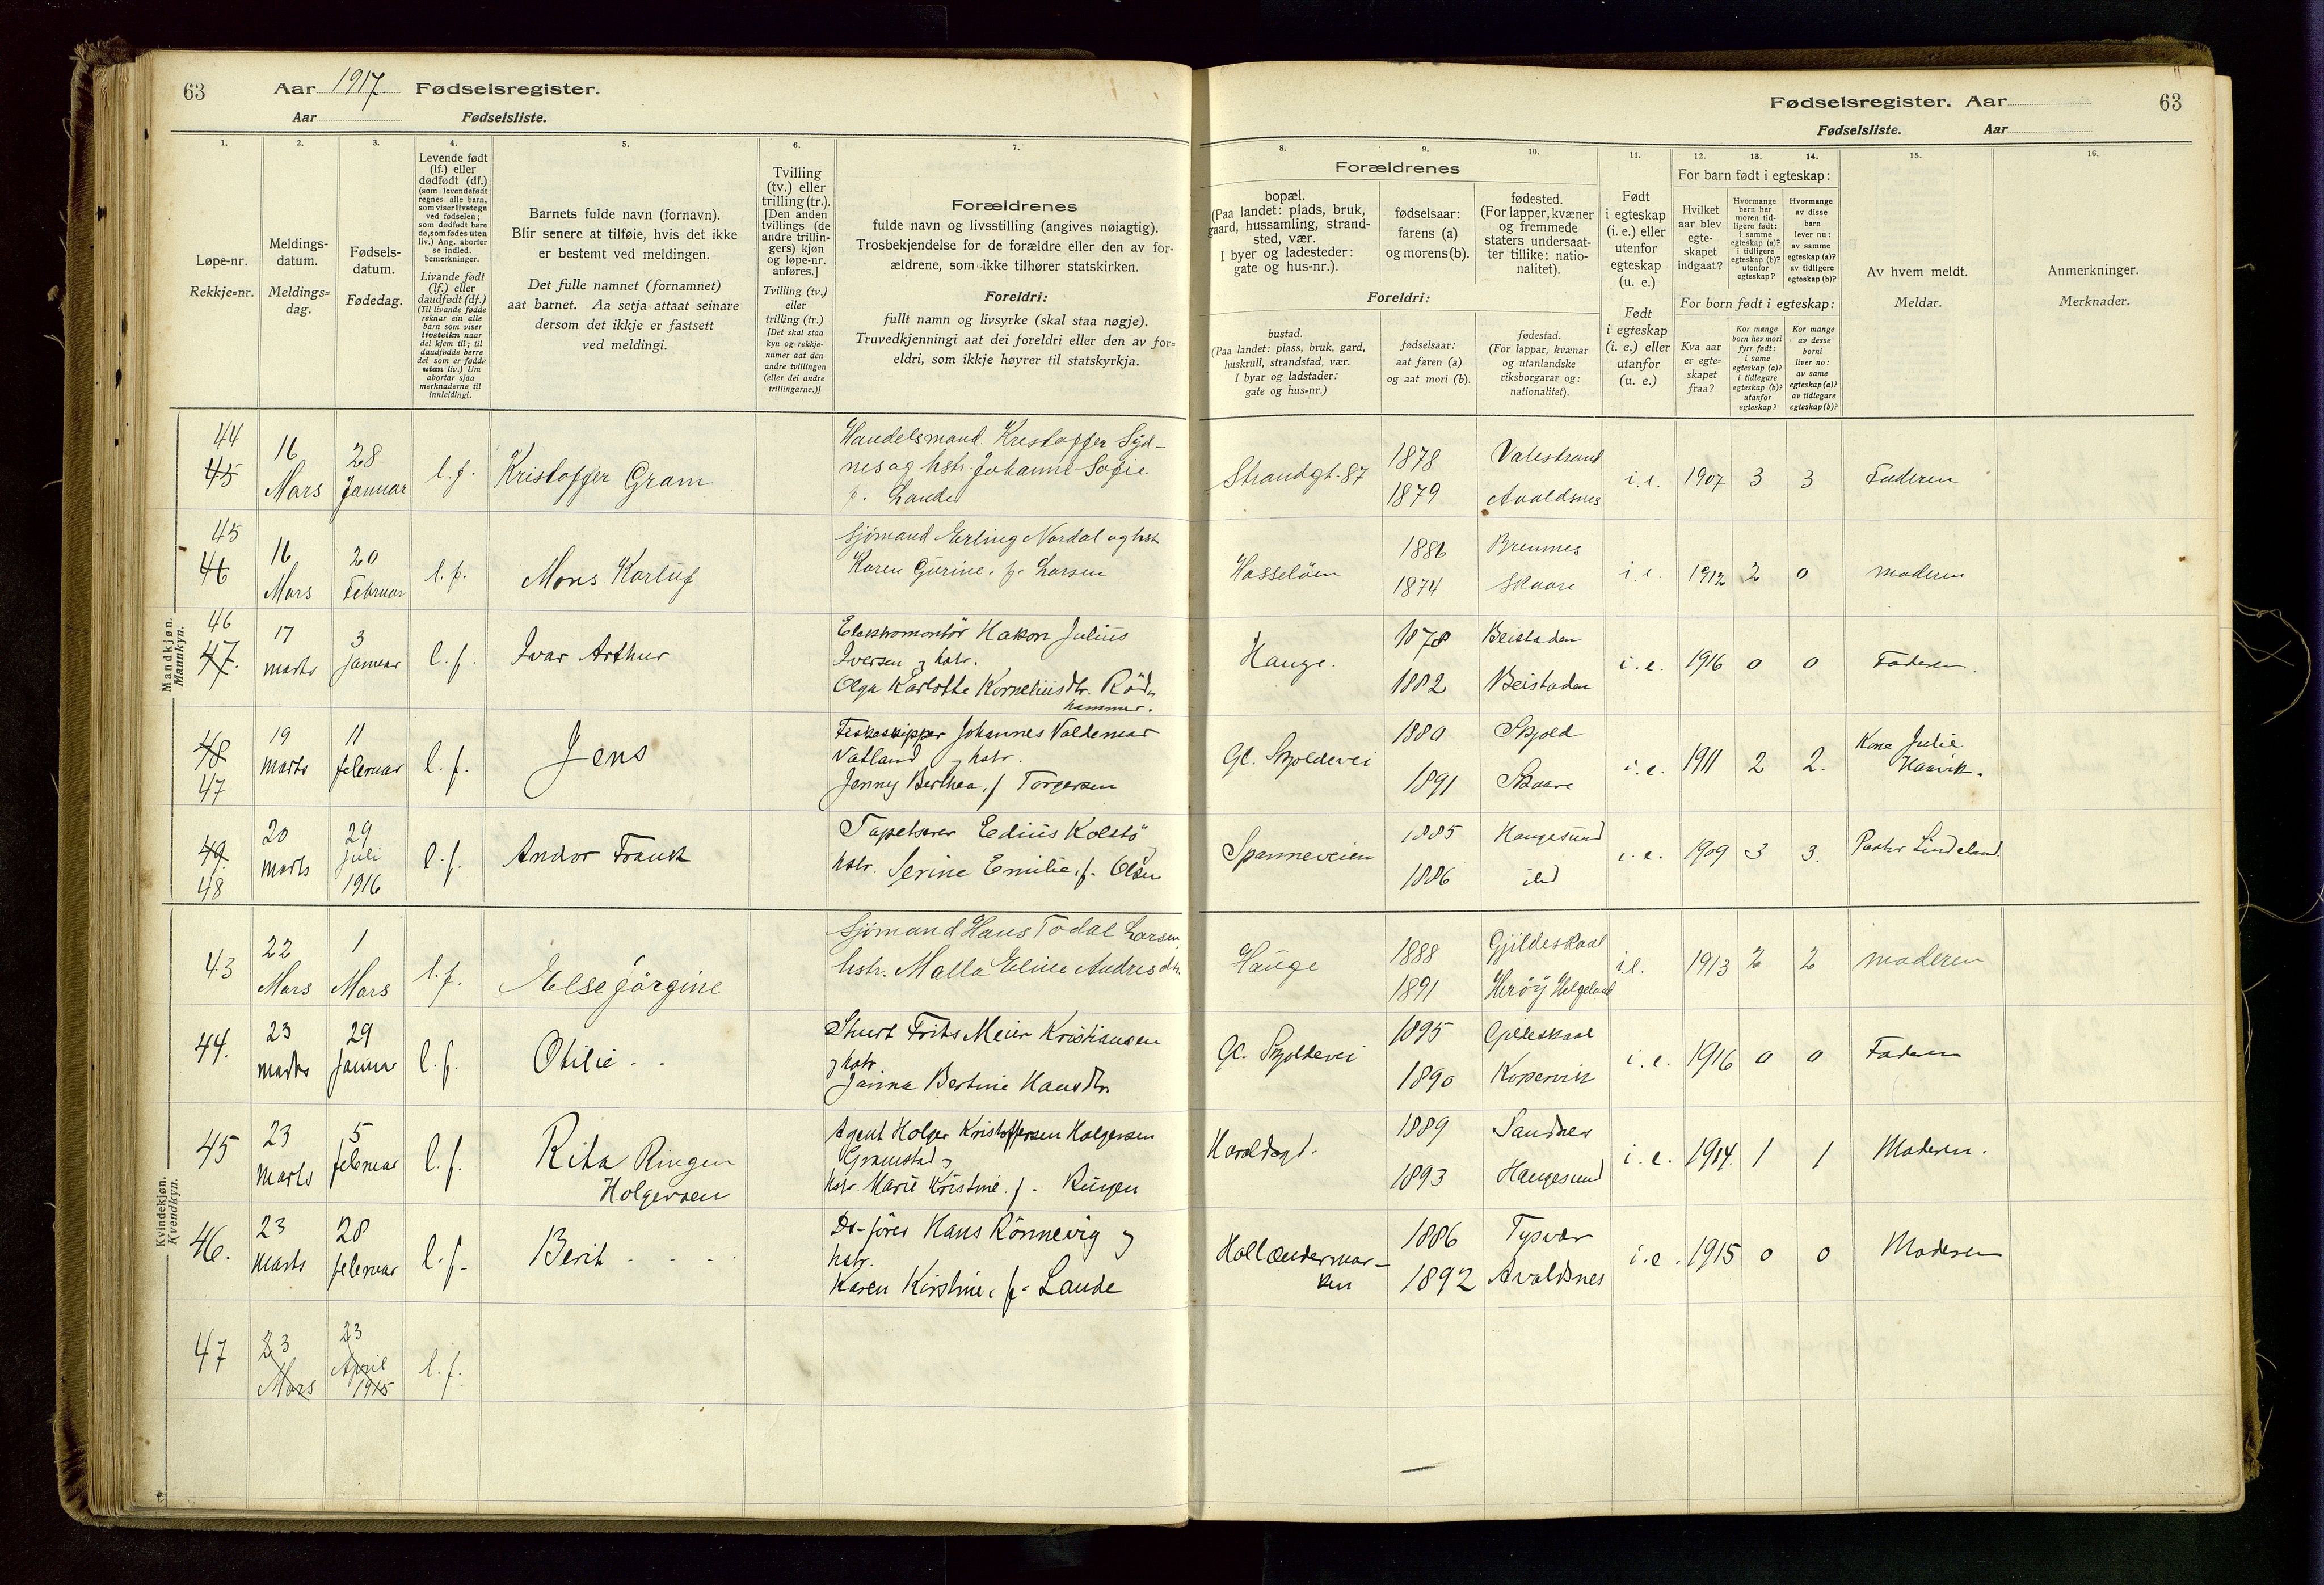 63
Aar 1917. Fødselsregister.
Aar Fødselsliste.
Fødselsregister. Aar
63
Fødselsliste. Aar
1.
Løpe-nr.
Rekkje-nr.
2.
Meldings-
datum.
Meldings-
dag.
3.
Fødsels-
datum.
Fødedag.
4.
Levende født
(lf.) eller
dødfødt (df.)
(som levendefødt
regnes alle barn,
som viser livstegn
ved fødselen;
som dødfødt bare
de, som fødes uten
liv.) Ang. aborter
se indled.
bemerkninger.
Livande født
(lf.) eller
daudfødt (df.)
(Til livande fødde
reknar ein alle
barn som viser
livsteikn naar
dei kjem til; til
daudfødde berre
dei som er fødde
utan liv.) Um
abortar sjaa
merknaderne til
innleidingi.
5.
Barnets fulde navn (fornavn).
Blir senere at tilføie, hvis det ikke
er bestemt ved meldingen.
Det fulle namnet (fornamnet)
aat barnet. Aa setja attaat seinare
dersom det ikkje er fastsett
ved meldingi.
6.
Tvilling
(tv.) eller
trilling (tr.).
[Den anden
tvillings (de
andre trillin-
gers) kjøn
og løpe-nr.
anføres.]
Tvilling (tv.)
eller
trilling (tr.)
[Det skal staa
kyn og rekkje-
numer aat den
andre tvillingen
(eller dei andre
trillingarne.)]
7.
Forældrenes
fulde navn og livsstilling (angives nøiagtig).
Trosbekjendelse for de forældre eller den av for-
ældrene, som ikke tilhører statskirken.
Foreldri:
fullt namn og livsyrke (skal staa nøgje).
Truvedkjenningi aat dei foreldri eller den av for-
eldri, som ikkje høyrer til statskyrkja.
Forældrenes
8.
bopæl.
(Paa landet: plads, bruk,
gaard, hussamling, strand-
sted, vær.
I byer og ladesteder:
gate og hus-nr.).
9.
fødselsaar:
farens (a)
og morens (b).
10.
fødested.
(For lapper, kvæner
og fremmede
staters undersaat-
ter tillike: natio-
nalitet).
Foreldri:
bustad.
(Paa landet: plass, bruk, gard,
huskrull, strandstad, vær.
I byar og ladstader:
gate og hus-nr.)
fødselsaar:
aat faren (a)
og aat mori (b).
fødestad.
(For lappar, kvænar
og utanlandske
riksborgarar og:
nationalitet).
11.
Født
i egteskap
(i. e.) eller
utenfor
egteskap
(u. e.)
Født
i egteskap
(i. e.) eller
utanfor
(u. e.)
For barn født i egteskap:
12.
Hvilket
aar blev
egte-
skapet
indgaat?
13.
Hvormange
barn har
moren tid-
ligere født:
i samme
egteskap (a)?
i tidligere
egteskap (b)?
utenfor
egteskap?
14.
Hvormange
av disse
barn
lever nu:
av samme
egteskap (a)?
av tidligere
egteskap (b)?
For born født i egteskap:
Kva aar
er egte-
skapet
fraa?
Kor mange
born hev mori
fyrr født:
i same
egteskap (a)?
i tidlegare
egteskap (b)?
utanfor
egteskap?
Kor mange
av desse
borni
liver no:
av same
egteskap (a)?
av tidlegare
egteskap (b)?
15.
Av hvem meldt.
Meldar.
16.
Anmerkninger.
Merknader.
Mandkjøn.
Mannkyn.
44
45
16
Mars
28
Januar
l. f.
Kristoffer Gram
Handelsmand. Kristoffer Syd-
nes og hstr. Johanne Sofie
f. Lande
Strandgt. 87
1878
1879
Valestrand
Avaldsnes
i. e.
1907
3
3
Faderen
45
46
16
Mars
20
Februar
l. f.
Mons Karluf
Sjømand Erling Nordal og hst.
Karen Gurine. f. Larsen
Hasseløen
1886
1874
Bremnes
Skaare
i. e.
1912
2
0
moderen
46
47.
17
marts
3
januar
l. f.
Ivar Arthur
Elektromontör Hakon Julius
Iversen og hstr.
Olga Karlotte Korneliusdtr. Röd-
hammer.
Hauge.
1878
1882
Beistaden
Beistaden
i. e.
1916
0
0
Faderen.
48
47
19
marts
11
februar
l. f.
Jens
Fiskeskipper Johannes Valdemar
Vatland og hstr.
Jenny Berthea, f Torgersen
Gl. Skjoldevei
1880
1891
Skjold
Skaare
i. e.
1911
2
2.
Kone Julie
Haavik.
49.
48
20
marts
29
juli
1916
l. f.
Andor Frank
Tapetserer Edius Kolstö
hstr. Serine Emilie, f. Olsen
Spanneveien
1885
1886
Haugesund
ibd
i. e.
1909
3
3.
Pastor Lindeland.
Kvindekjøn.
Kvendkyn.
43
22
Mars
1
Mars
l. f.
Else Jørgine
Sjømand Hans Todal Larsen,
hstr. Malla Eline Andresdtr.
Hauge
1888
1891
Gjildeskaal
Herøy Helgeland
i. e.
1913
2
2
moderen
44.
23
marts
29
januar
l. f.
Otilie
Stuert Frits Meier Kristiansen
og hstr
Janna Bertine Hansdtr
Gl. Skjoldevei
1895
1890
Gildeskaal
Kopervik
i. e.
1916
0
0
Faderen
45
23
Marts
5
februar
l. f.
Rita Ringen
Holgersen
Agent Holger Kristoffersen Holgersen
Gramstad og
hstr. Marie Kristine. f. Ringen
Haraldsgt.
1889
1893
Sandnes
Haugesund
i. e.
1914.
1
1
Moderen.
46.
23
Marts
28
februar
l. f.
Berit
Ds-fører Hans Rönnevig og
hstr.
Karen Kirstine. f. Lande
Hollendermar-
ken
1886
1892
Tysvær
Avaldsnes
i. e.
1915
0
0
Moderen
47
23
Mars
23
April
1915
l. f.